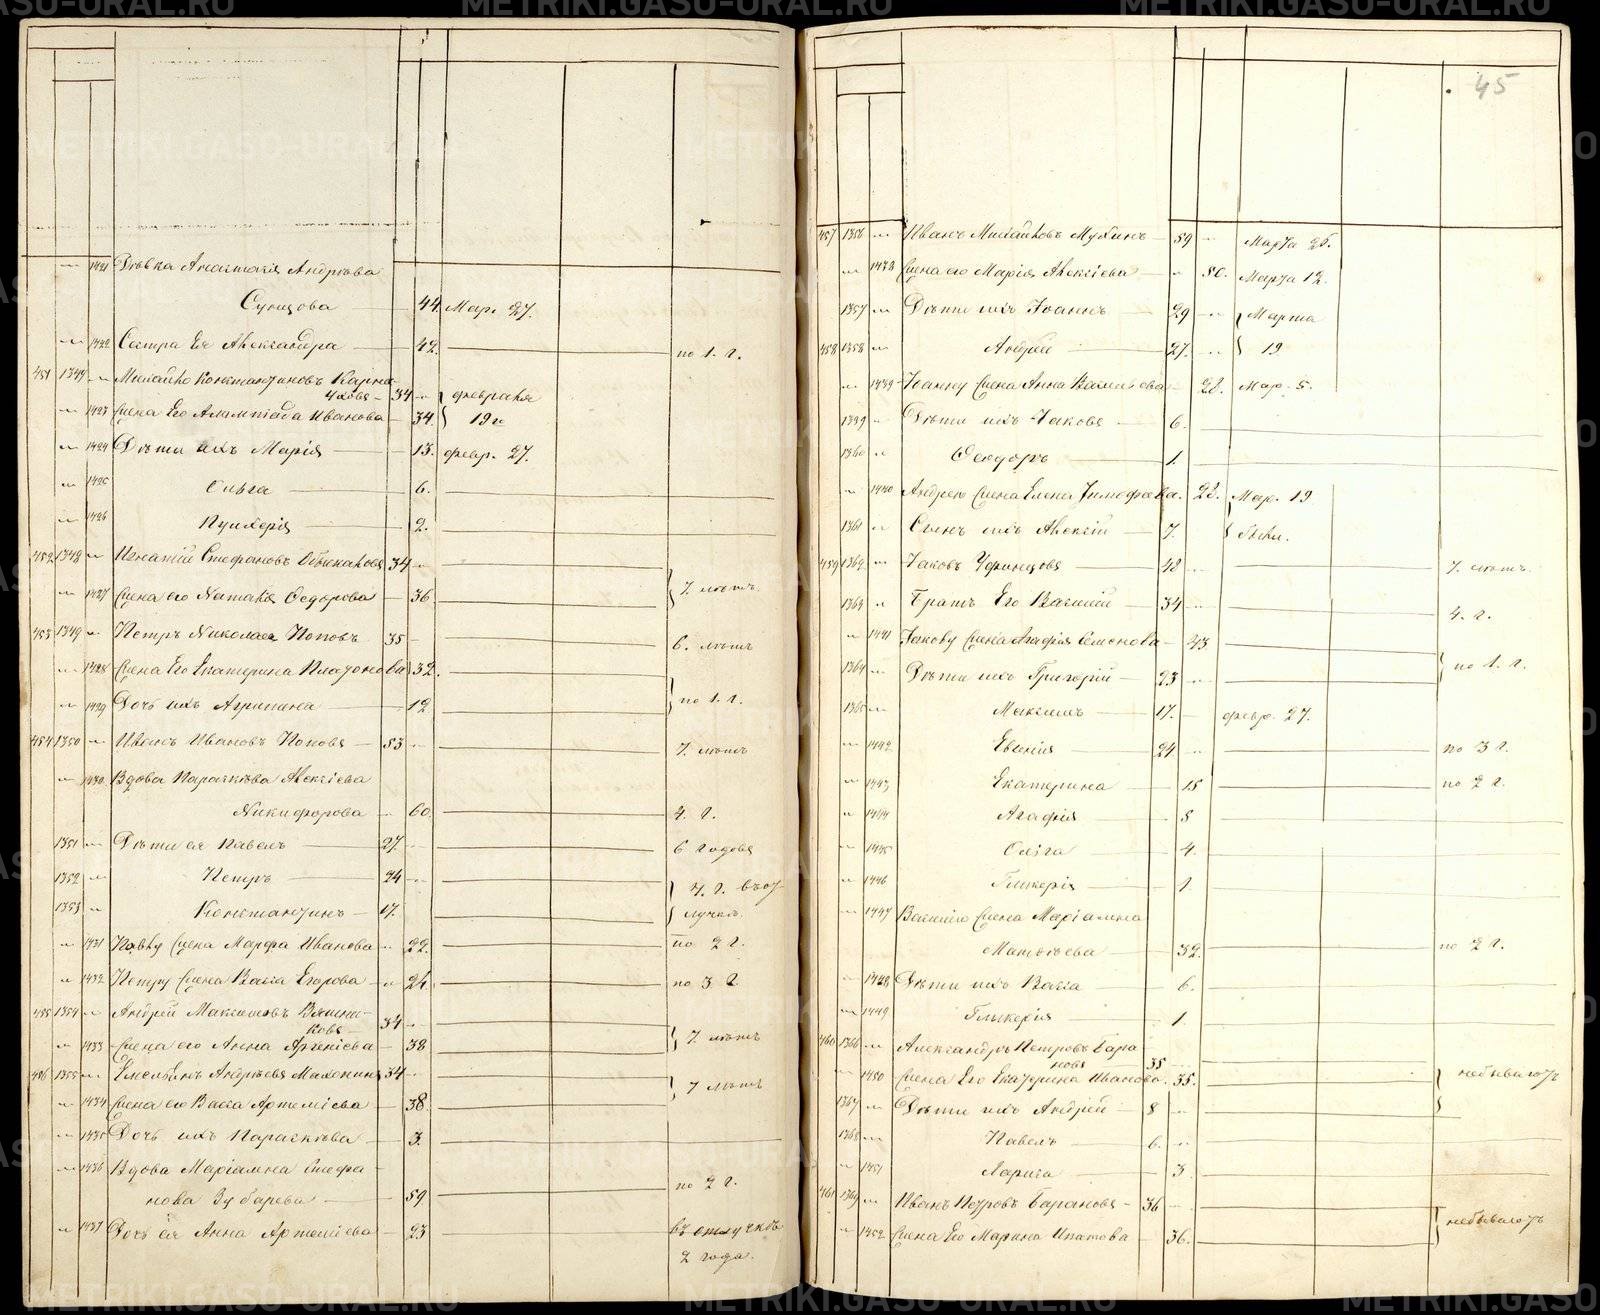 METRIKI.GASO-URAL.RU
45
1421 Дѣвка Анастасія Андреева
Сунцова 44. Мар. 27.
1422 Сестра Ея Александра 42. по 1. г.
451 1347 Михайло Константиновъ 34 февраля
1423 Жена Его Иванова 34. 19
1424 Дѣти ихъ Марія 13. февр. 27.
1425 Ольга 6.
1426 Пулхерія 2.
452 1348 Игнатій Стефановъ 34
1427 Жена его Наталія Ѳедорова 36 7. лѣтъ.
453 1349 Петръ Николаевъ Поповъ 35 6. лѣтъ
1428 Жена Его Екатерина Платонова 32.
1429 Дочь ихъ Агрипина 12 по 1. г.
454 1350 Иванъ Ивановъ Поповъ 53 7. лѣтъ
1430 Вдова Параскѣва Алексіева
Никифорова 60. 4. г.
1351 Дѣти ея Павелъ 27. 6 годовъ
1352 Петръ 24
1353 Константинъ 17.
1431 Павлу Жена Марфа Иванова 22. по 2 г.
1432 Петру Жена Васса Егорова 24. по 3 г.
455 1354 Андрей Максимовъ 34
1433 Жена его Анна 38 7. лѣтъ
456 1355 Андреевъ 34
1434 Жена его Васса Артеміева 38. 7 лѣтъ
1435 Дочь ихъ Параскѣва 3.
1436 Вдова Маріамна Стефа-
нова Зубарева 59 по 2 г.
1437 Дочь ея Анна Артеміева 23 въ отлучкѣ
2 года.
457 1356 Иванъ Михайловъ Мухинъ 59 Марта 25.
1438 Жена его Марія Алексіева 50. Марта 12.
1357 Дѣти ихъ Іоаннъ 29 Марта
458 1358 Андрей 27. 19
1439 Іоанну Жена Анна Васильева 28. Мар. 5.
1359 Дѣти ихъ Іаковъ 6.
1360 Ѳеодоръ 1.
1440 Андрею Жена Елена Тимофѣева. 28. Мар. 19
1361 Сынъ ихъ Алексій 7. были.
459 1362 Іаковъ 48 7. лѣтъ.
1363 Братъ Его Василій 34 4. г.
1441 Іакову Жена Агафія Семенова 43
1364 Дѣти ихъ Григорій 23 по 1. г.
1365 Максимъ 17. февр. 27.
1442 Евгенія 24 по 3 г.
1443 Екатерина 15 по 2 г.
1444 Агафія 8
1445 Олга 4.
1446 Гликерія 1
1447 Василію Жена Маріамна
Матвѣева 32. по 2 г.
1448 Дѣти ихъ Васса 6.
1449 Гликерія 1
460 1366 Александръ Петровъ Бара
новъ 35
1450 Жена Его Екатерина Иванова. 35. небываютъ
1367 Дѣти ихъ Андрей 8
1368 Павелъ 6.
1451 Лариса 3
461 1369 Иванъ Петровъ Барановъ 36
1452 Жена Его Марина Ипатова 36. небываютъ